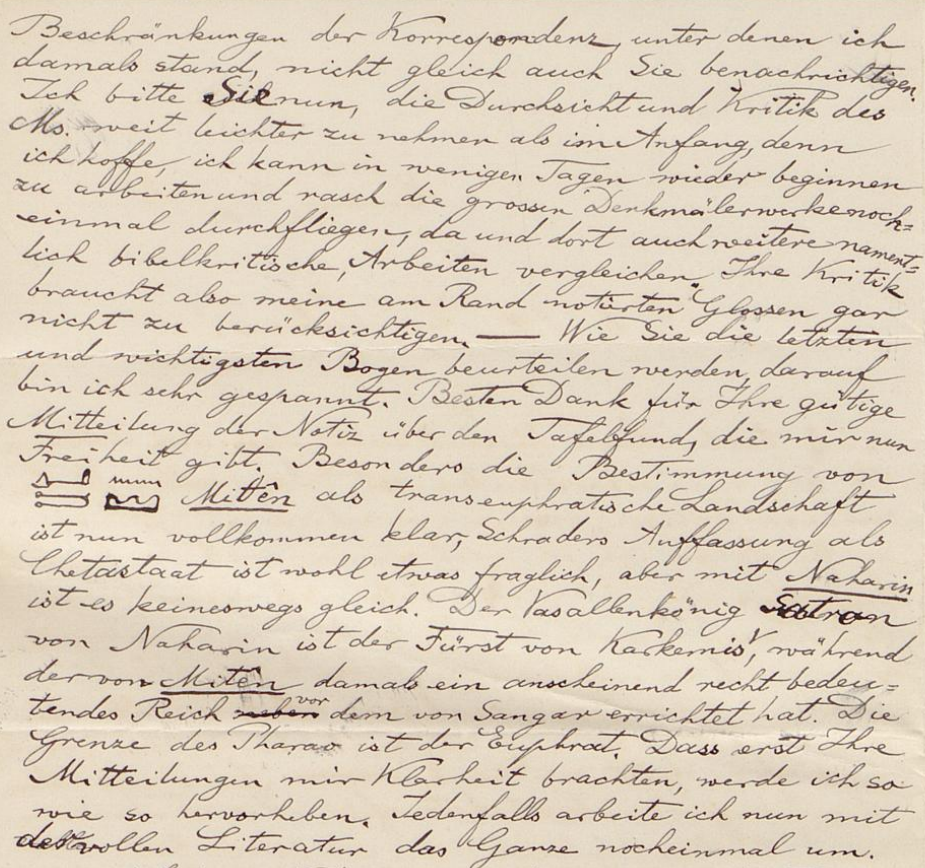 Beschränkungen der Korrespondenz, unter denen ich
damals stand, nicht gleich auch Sie benachrichtigen.
Ich bitte Sie nun, die Durchsicht und Kritik des
Ms. weit leichter zu nehmen als im Anfang, denn
ich hoffe, ich kann in wenigen Tagen wieder beginnen
zu arbeiten und rasch die grossen Denkmälerwerke noch=
einmal durchfliegen, da und dort auch weitere nament=
lich bibelkritische, Arbeiten vergleichen. Ihre Kritik
braucht also meine am Rand notirten Glossen gar
nicht zu berücksichtigen. — Wie Sie die letzten
und wichtigsten Bogen beurteilen werden, darauf
bin ich sehr gespannt. Besten Dank für Ihre gütige
Mitteilung der Notiz über den Tafelfund, die mir nun
Freiheit gibt. Besonders die Bestimmung von
Mitên als transeuphratische Landschaft
ist nun vollkommen klar, Schraders Auffassung als
Chetastaat ist wohl etwas fraglich, aber mit Naharin
ist es keineswegs gleich. Der Vasallenkönig
von Naharin ist der Fürst von Karkemiš, während
der von Mitên damals ein anscheinend recht bedeu=
tendes Reich neben vor dem von Sangar errichtet hat. Die
Grenze des Pharao ist der Euphrat. Dass erst Ihre
Mitteilungen mir Klarheit brachten, werde ich so
wie so hervorheben. Jedenfalls arbeite ich nun mit
vollen Literatur das Ganze nocheinmal um.